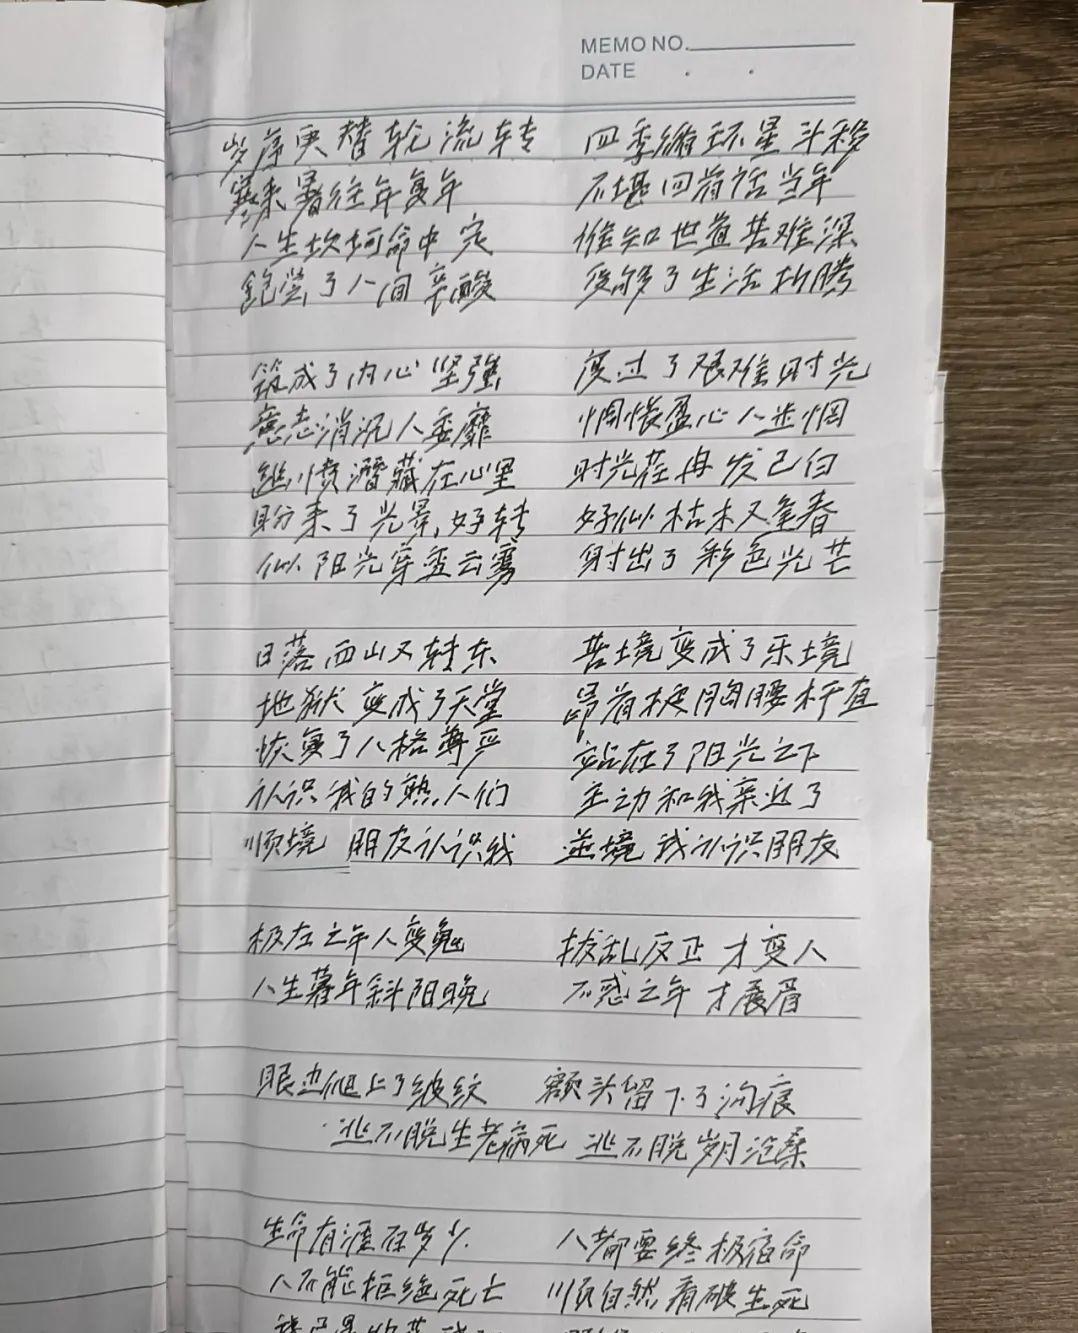 MEMO NO.
DATE . .
岁序更替轮流转 四季循环星斗移
寒来暑往年复年 不堪回首话当年
人生坎坷命中定 谁知世道苦难深
饱尝了人间辛酸 受够了生活折腾
筑成了内心坚强 度过了艰难时光
意志消沉人委靡 惆怅盈心人迷惘
愤潜藏在心里 时光荏苒发已白
盼来了光景好转 好似枯木又逢春
似阳光穿透云雾 射出了彩色光芒
日落西山又转东 苦境变成了乐境
地狱变成了天堂 昂首挺胸腰杆直
恢复了人格尊严 站在了阳光之下
认识我的熟人们 主动和我亲近了
顺境 朋友认识我 逆境 我认识朋友
极左之年人变鬼 拔乱反正才变人
人生暮年斜阳晚 不惑之年才展眉
眼边爬上了皱纹 额头留下了沟痕
逃不脱生老病死 逃不脱岁月沧桑
生命有涯存岁少 人都要终极宿命
人不能拒绝死亡 顺自然看破生死